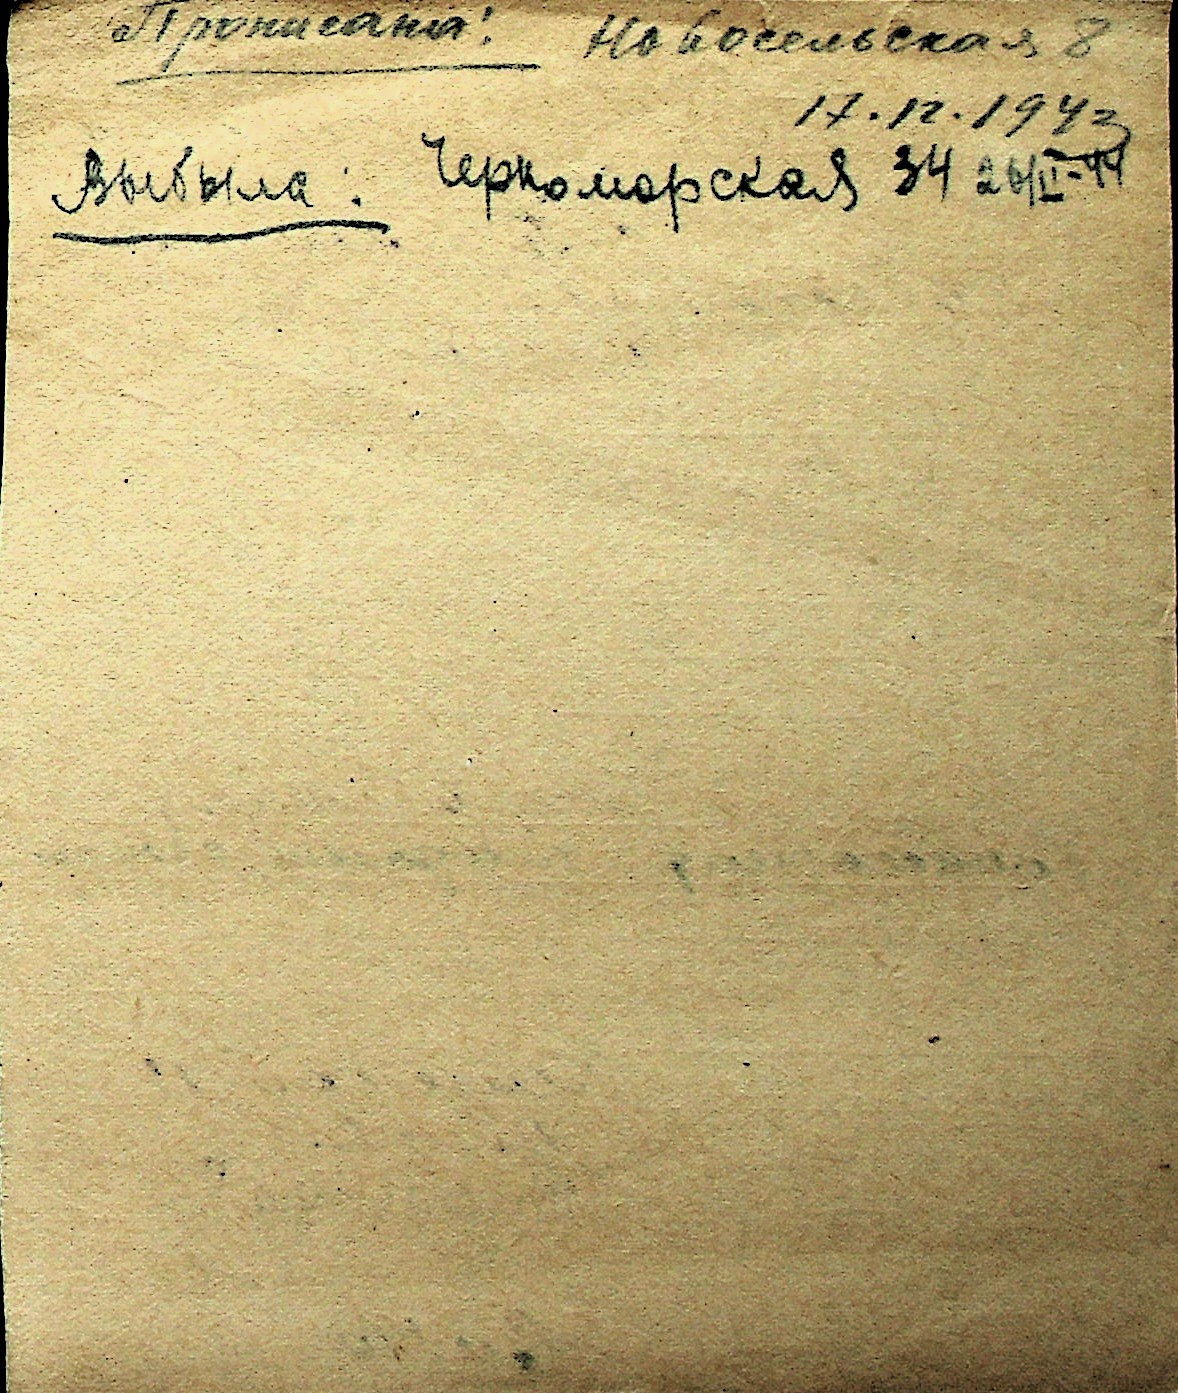 Прописана: Новосельская 8
17.12.1943
Выбыла: Черноморская 34 26/II-44